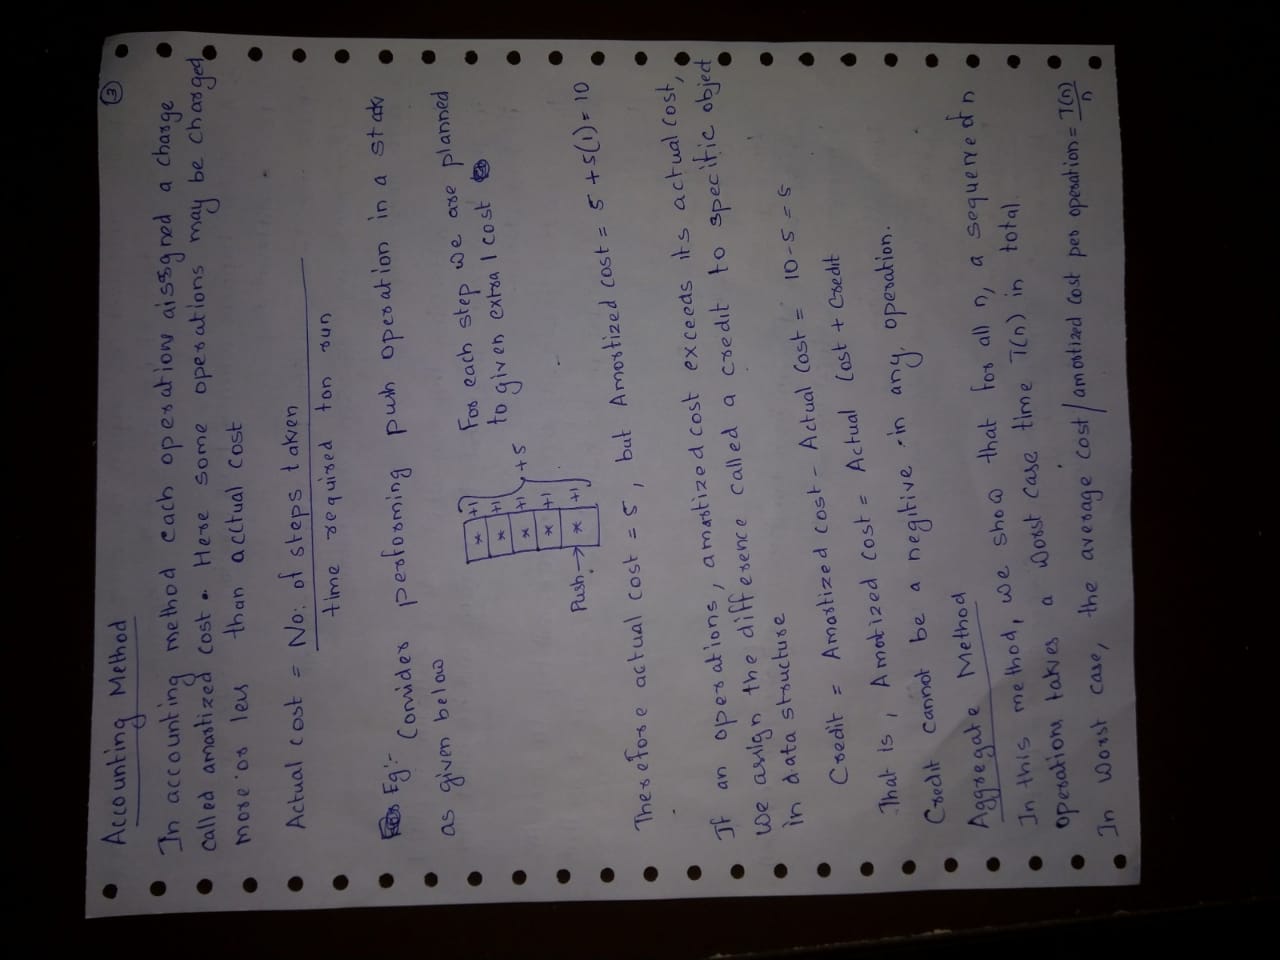 ③
Accounting Method
In accounting method each operations aissgned a charge
called amortized cost. Here some operations may be charged
more or less than acctual cost
Actual cost = No: of steps taken
time required ton run
Eg:- Consider performing push operation in a stack
as given below
For each step we are planned
to given extra 1 cost
* +1
* +1
* +1 +5
* +1
Push → * +1
Therefore actual cost = 5, but Amortized cost = 5 + 5(1) = 10
If an operations, amortized cost exceeds its actual cost,
we assign the difference called a credit to specific object
in data structure
Credit = Amortized cost - Actual Cost = 10 - 5 = 5
That is, Amotized cost = Actual Cost + Credit
Credit cannot be a negitive in any operation.
Aggregate Method
In this method, we show that for all n, a sequence of n
operations takes a worst case time T(n) in total
In worst case, the average cost/amortized cost per operation = T(n)/n